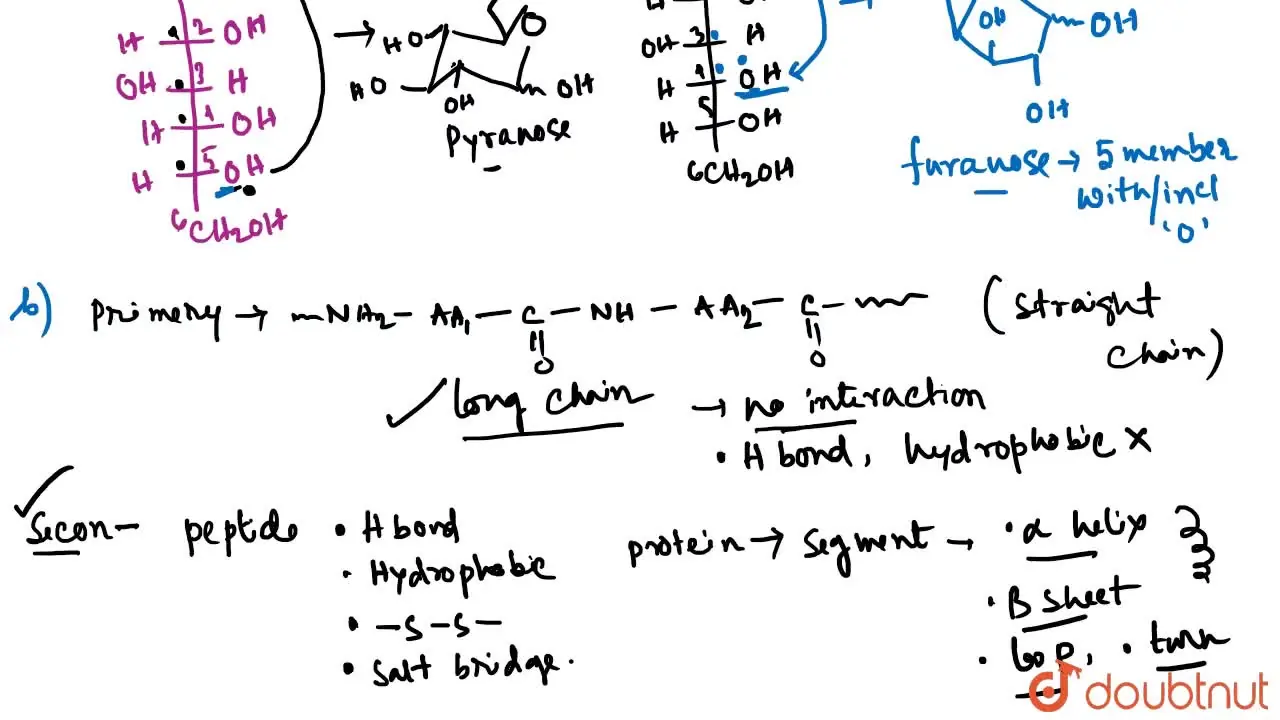 H 2 OH
OH 3 H
H 4 OH
H 5 OH
6CH2OH
HO
HO
OH
O
OH
Pyranose
OH 3 H
H 4 OH
H 5 OH
6CH2OH
OH
OH
OH
furanose → 5 member
with/incl
'O'
b) Primery → NH2 — AA1 — C — NH — AA2 — C — (Straight
O O chain)
✓ long chain → no interaction
• H bond, hydrophobic ×
✓ Secon – peptide • H bond protein → segment → • α helix
• Hydrophobic
• B sheet
• –S–S–
• loop, • turn
• Salt bridge.
doubtnut